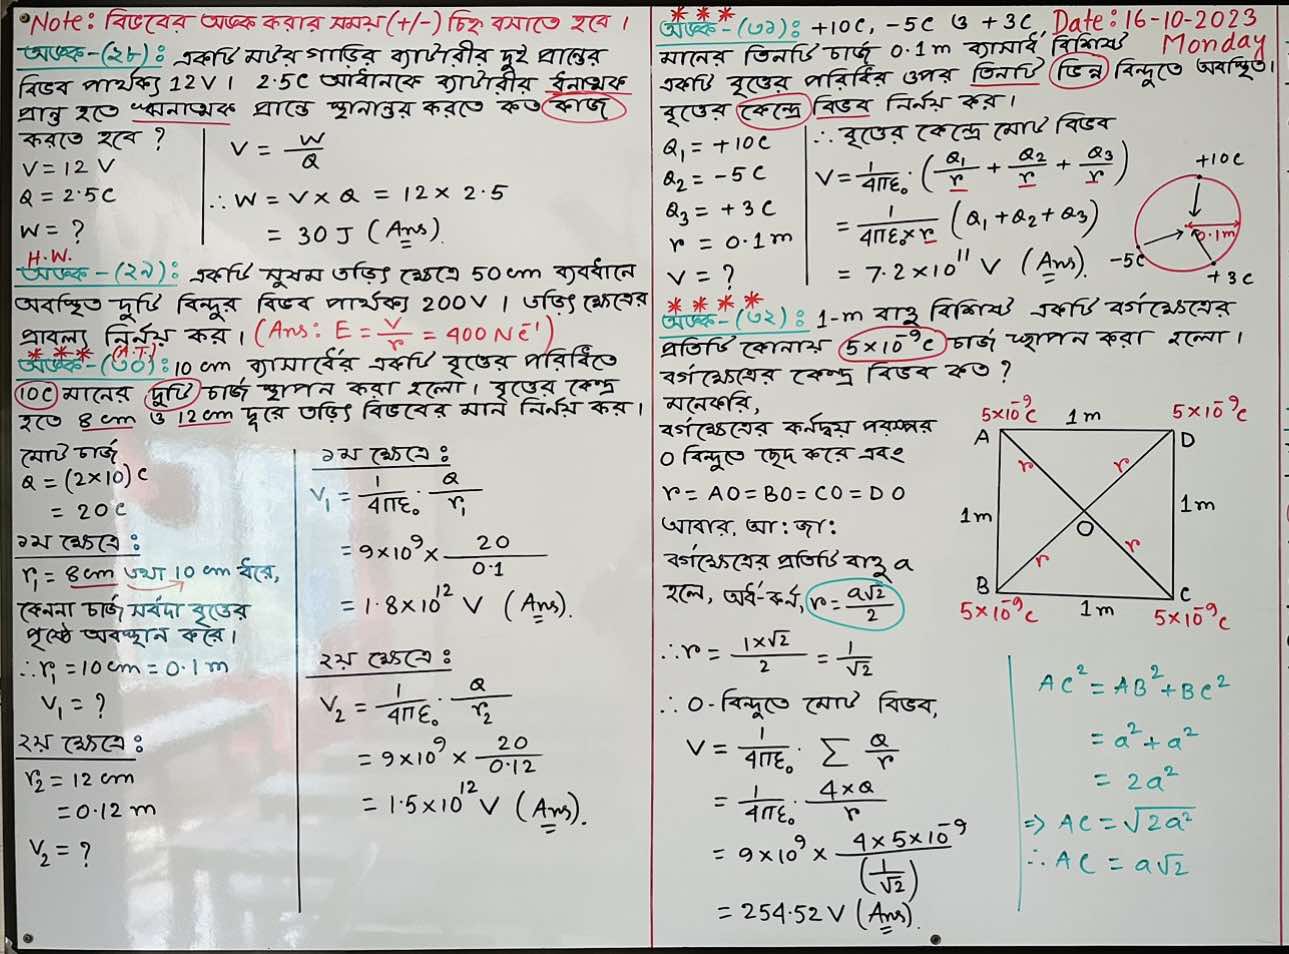 Note: বিভবের অঙ্ক করার সময় (+/-) চিহ্ন বসাতে হবে।
অঙ্ক-(২৮): একটি মটর গাড়ির ব্যাটারীর দুই প্রান্তের
বিভব পার্থক্য 12V। 2.5C আধানকে ব্যাটারীর ধনাত্মক
প্রান্ত হতে ঋনাত্মক প্রান্তে স্থানান্তর করতে কত কাজ
করতে হবে?
V = 12 V
Q = 2.5C
W = ?
V = W/Q
∴ W = V × Q = 12 × 2.5
= 30 J (Ans).
H.W.
অঙ্ক-(২৯): একটি সুষম তড়িৎ ক্ষেত্রে 50 cm ব্যবধানে
অবস্থিত দুটি বিন্দুর বিভব পার্থক্য 200V। তড়িৎ ক্ষেত্রের
প্রাবল্য নির্নয় কর। (Ans: E = V/r = 400 NC⁻¹)
*** (A.T)
অঙ্ক-(৩০): 10 cm ব্যাসার্ধের একটি বৃত্তের পরিধিতে
10C মানের দুটি চার্জ স্থাপন করা হলো। বৃত্তের কেন্দ্র
হতে 8 cm ও 12 cm দূরে তড়িৎ বিভবের মান নির্নয় কর।
মোট চার্জ
Q = (2×10) C
= 20C
১ম ক্ষেত্রে:
r₁ = 8cm তথা 10 cm ধরে,
কেননা চার্জ সর্বদা বৃত্তের
পৃষ্ঠে অবস্থান করে।
∴ r₁ = 10 cm = 0.1 m
V₁ = ?
২য় ক্ষেত্রে:
r₂ = 12 cm
= 0.12 m
V₂ = ?
১ম ক্ষেত্রে:
V₁ = 1/4πε₀ . Q/r₁
= 9×10⁹ × 20/0.1
= 1.8×10¹² V (Ans).
২য় ক্ষেত্রে:
V₂ = 1/4πε₀ . Q/r₂
= 9×10⁹ × 20/0.12
= 1.5×10¹² V (Ans).
***
অঙ্ক-(৩১): +10C, -5C ও +3C, Date: 16-10-2023
Monday
মানের তিনটি চার্জ 0.1m ব্যাসার্ধ বিশিষ্ট
একটি বৃত্তের পরিধির ওপর তিনটি ভিন্ন বিন্দুতে অবস্থিত।
বৃত্তের কেন্দ্রে বিভব নির্নয় কর।
Q₁ = +10C
Q₂ = -5C
Q₃ = +3C
r = 0.1m
V = ?
∴ বৃত্তের কেন্দ্রে মোট বিভব
V = 1/4πε₀ . (Q₁/r + Q₂/r + Q₃/r)
= 1/4πε₀×r (Q₁+Q₂+Q₃)
= 7.2×10¹¹ V (Ans).
+10C
0.1m
-5C
+3C
****
অঙ্ক-(৩২): 1-m বাহু বিশিষ্ট একটি বর্গক্ষেত্রের
প্রতিটি কোনায় 5×10⁻⁹C চার্জ স্থাপন করা হলো।
বর্গক্ষেত্রের কেন্দ্রে বিভব কত?
মনেকরি,
বর্গক্ষেত্রের কর্নদ্বয় পরস্পর
O বিন্দুতে ছেদ করে এবং
r = AO = BO = CO = DO
আবার, আ: জা:
বর্গক্ষেত্রের প্রতিটি বাহু a
হলে, অর্ধ-কর্ন, r = a√2/2
∴ r = 1×√2/2 = 1/√2
∴ O-বিন্দুতে মোট বিভব,
V = 1/4πε₀ . Σ Q/r
= 1/4πε₀ . 4×Q/r
= 9×10⁹ × 4×5×10⁻⁹/(1/√2)
= 254.52 V (Ans).
5×10⁻⁹C 5×10⁻⁹C
A 1m D
r r
1m O 1m
r r
B C
5×10⁻⁹C 1m 5×10⁻⁹C
AC² = AB² + BC²
= a² + a²
= 2a²
⇒ AC = √2a²
∴ AC = a√2